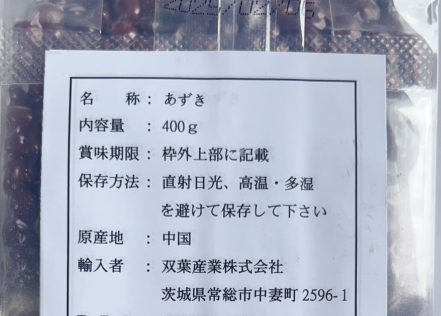 名　　称 ： あずき
内容量　： 400ｇ
賞味期限 ： 枠外上部に記載
保存方法 ： 直射日光、高温・多湿
を避けて保存して下さい
原産地　： 中国
輸入者　： 双葉産業株式会社
茨城県常総市中妻町 2596-1